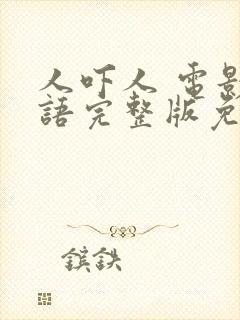 人吓人 電影
語完整版免
鑌鉄